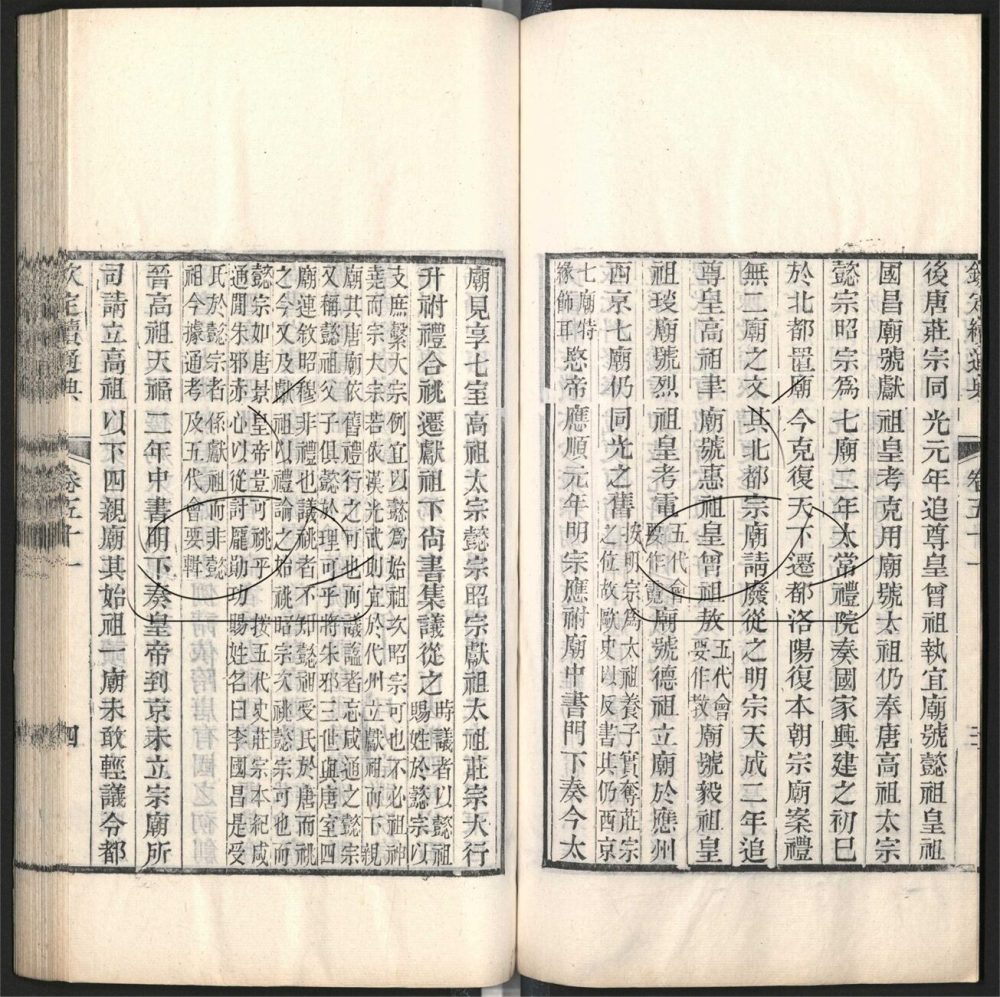 後唐莊宗同光元年追尊皇曾祖執宜廟號懿祖皇祖
國昌廟號獻祖皇考克用廟號太祖仍奉唐高祖太宗
懿宗昭宗爲七廟二年太常禮院奏國家興建之初巳
於北都置廟今克復天下遷都洛陽復本朝宗廟案禮
無二廟之文其北都宗廟請廢從之明宗天成二年追
尊皇高祖聿廟號惠祖皇曾祖敖五代會要作教廟號毅祖皇
祖琰廟號烈祖皇考電五代會要作霓廟號德祖立廟於應州
西京七廟仍同光之舊按明宗爲太祖養子實奪莊宗之位故歐史以反書其仍西京
七廟特緣飾耳愍帝應順元年明宗應祔廟中書門下奏今太
卷五十一
三
廟見享七室高祖太宗懿宗昭宗獻祖太祖莊宗大行
升祔禮合祧遷獻祖下尚書集議從之時議者以懿祖賜姓於懿宗以
支庶繫大宗例宜以懿爲始祖次昭宗可也不必祖神
堯而宗太宗若依漢光武則宜於代州立獻祖而下親
廟其唐廟依舊禮行之可也而議諡者忘咸通之懿宗
又稱懿祖父子俱懿於理可乎將朱邪三世與唐室四
廟連敘昭穆非禮也議祧者不知懿祖受氏於唐而祧
之今又及獻祖以禮論之始祧昭宗次祧懿宗可也而
懿宗如唐景皇帝豈可祧乎 按五代史莊宗本紀咸
通間朱邪赤心以從討龐勛功賜姓名曰李國昌是受
氏於懿宗者係獻祖而非懿
祖今據通考及五代會要輯
晉高祖天福二年中書門下奏皇帝到京未立宗廟所
司請立高祖以下四親廟其始祖一廟未敢輕議令都
欽定續通典
卷五十一
四